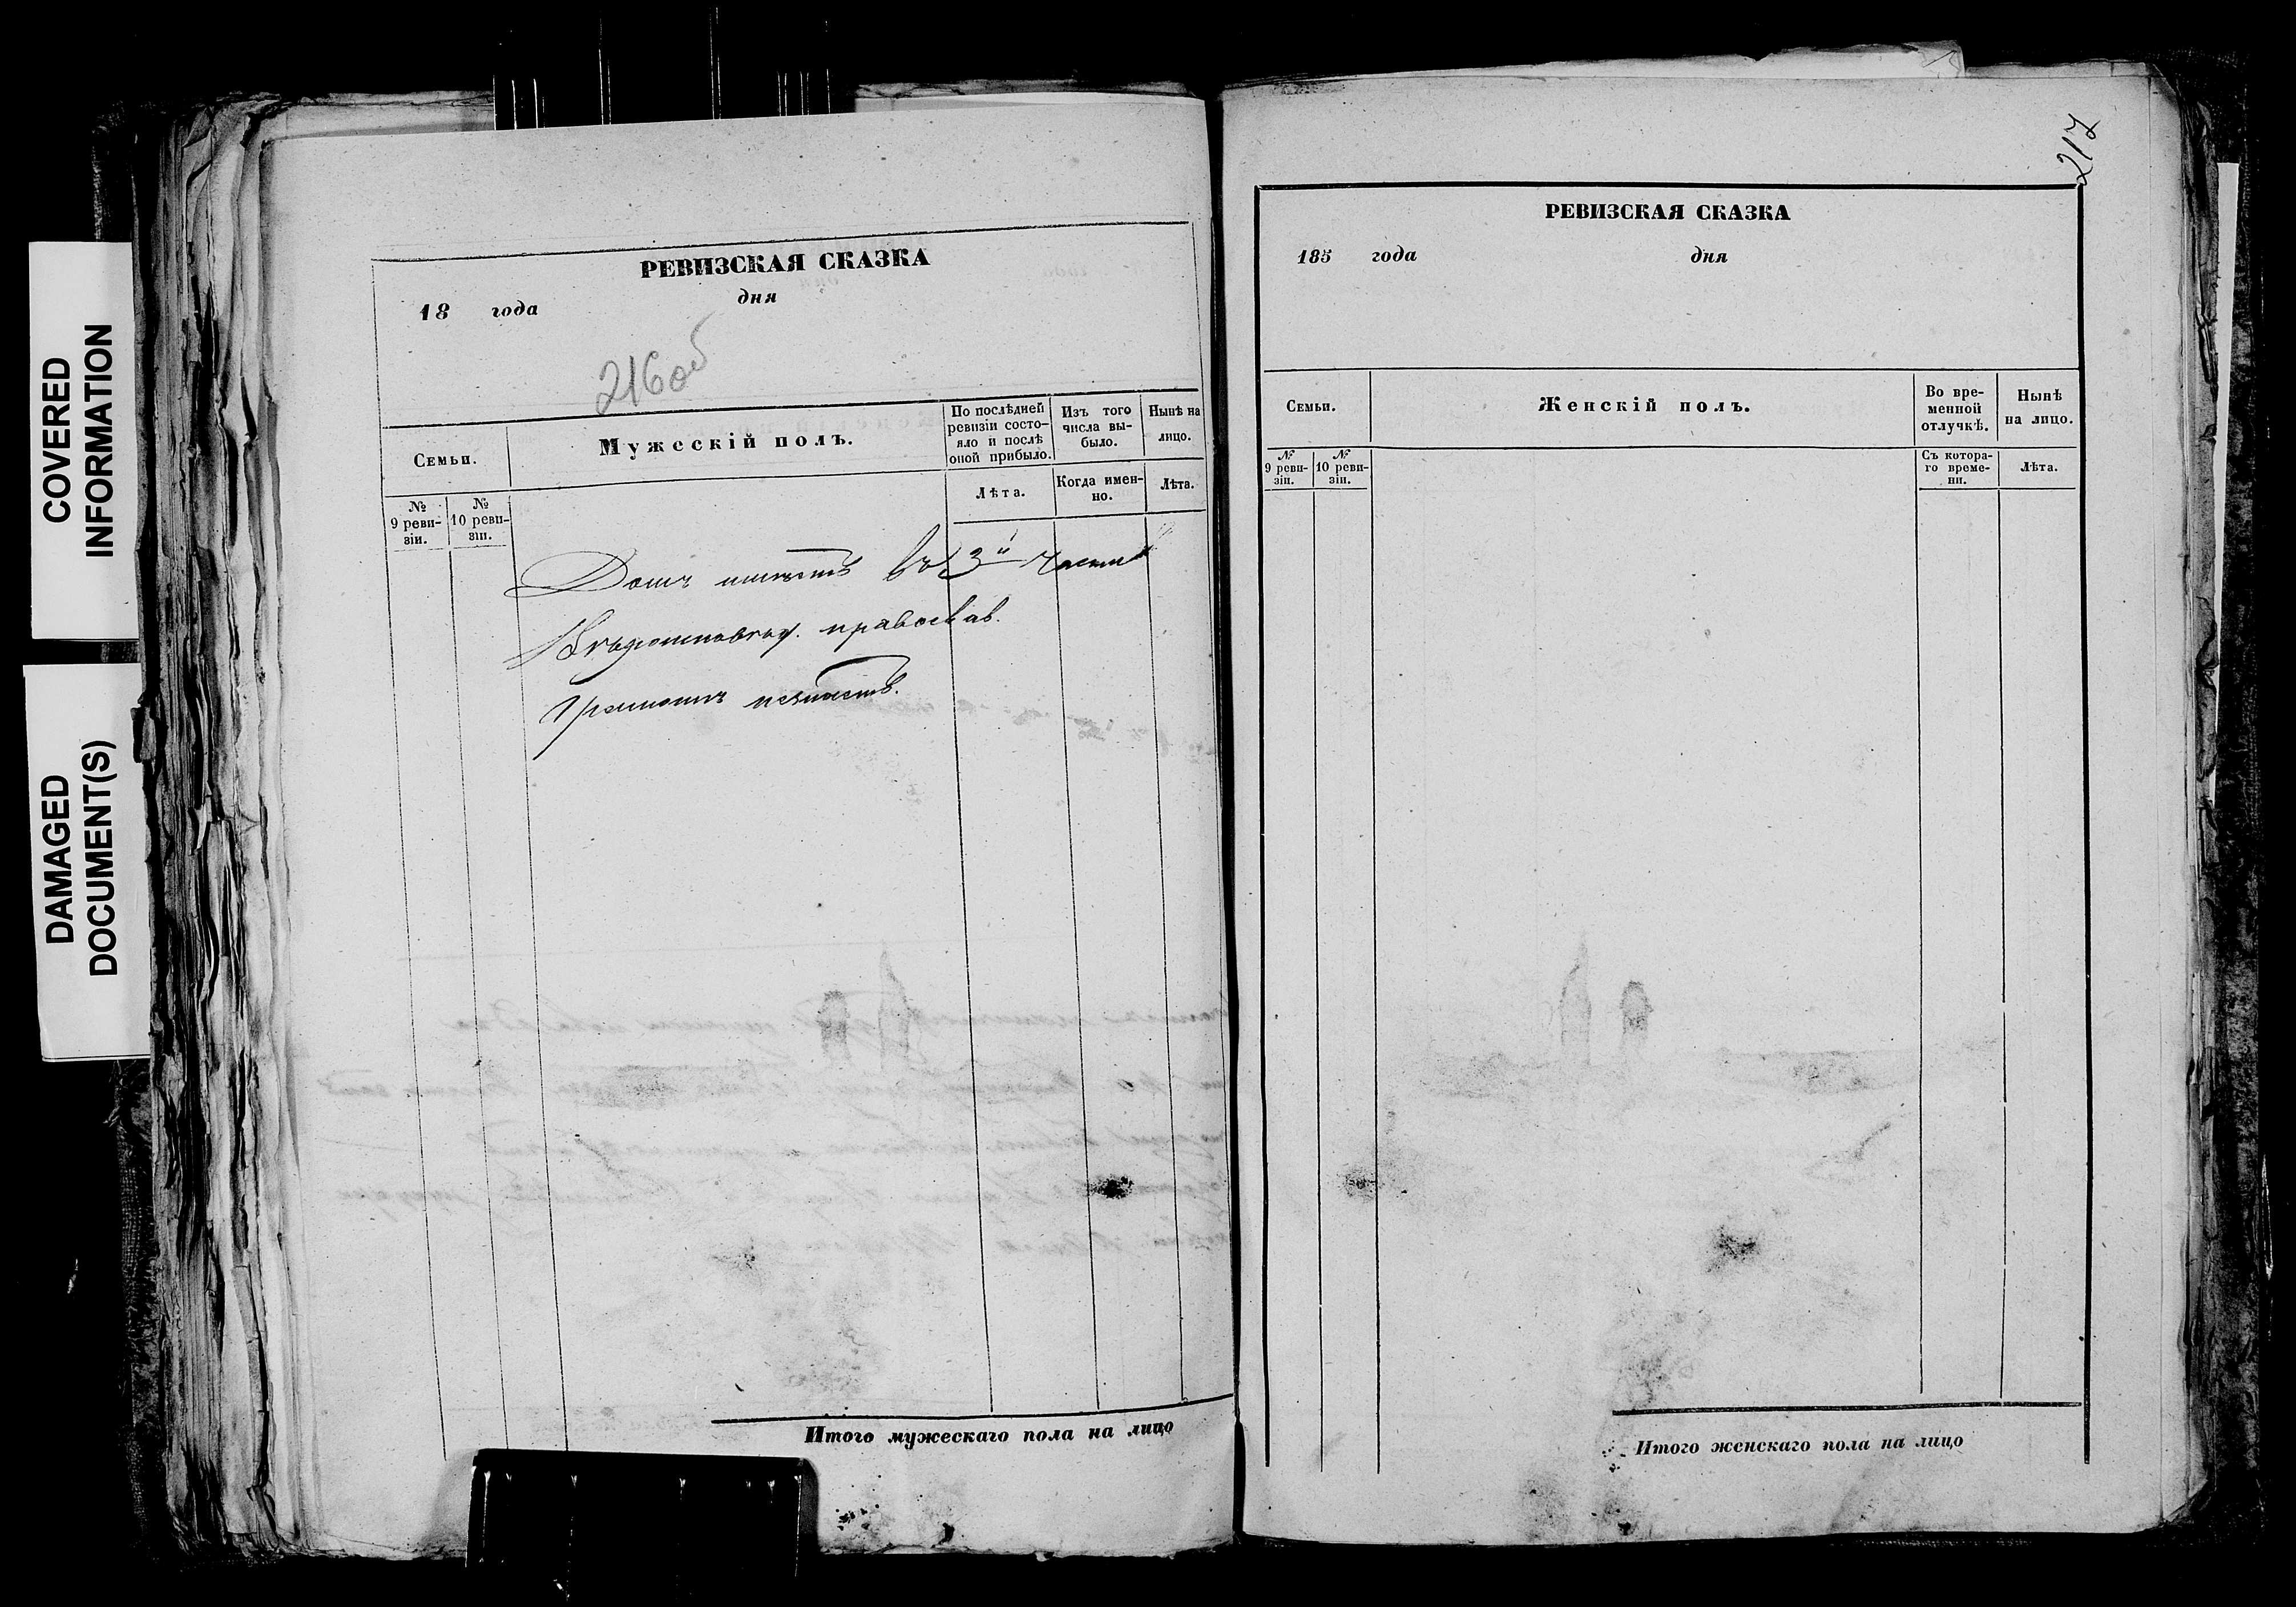 COVERED
INFORMATION
DAMAGED
DOCUMENT(S)
РЕВИЗСКАЯ СКАЗКА
18 года дня
216об
Семьи.
Мужескій полъ.
По послѣдней ревизіи состояло и послѣ оной прибыло.
Изъ того числа выбыло.
Нынѣ на лицо.
№ 9 ревизіи.
№ 10 ревизіи.
Лѣта.
Когда именно.
Лѣта.
Домъ имѣетъ въ 3й части
православ.
Грамотѣ
Итого мужескаго пола на лицо
217
РЕВИЗСКАЯ СКАЗКА
185 года дня
Семьи.
Женскій полъ.
Во временной отлучкѣ.
Нынѣ на лицо.
№ 9 ревизіи.
№ 10 ревизіи.
Съ котораго времени.
Лѣта.
Итого женскаго пола на лицо